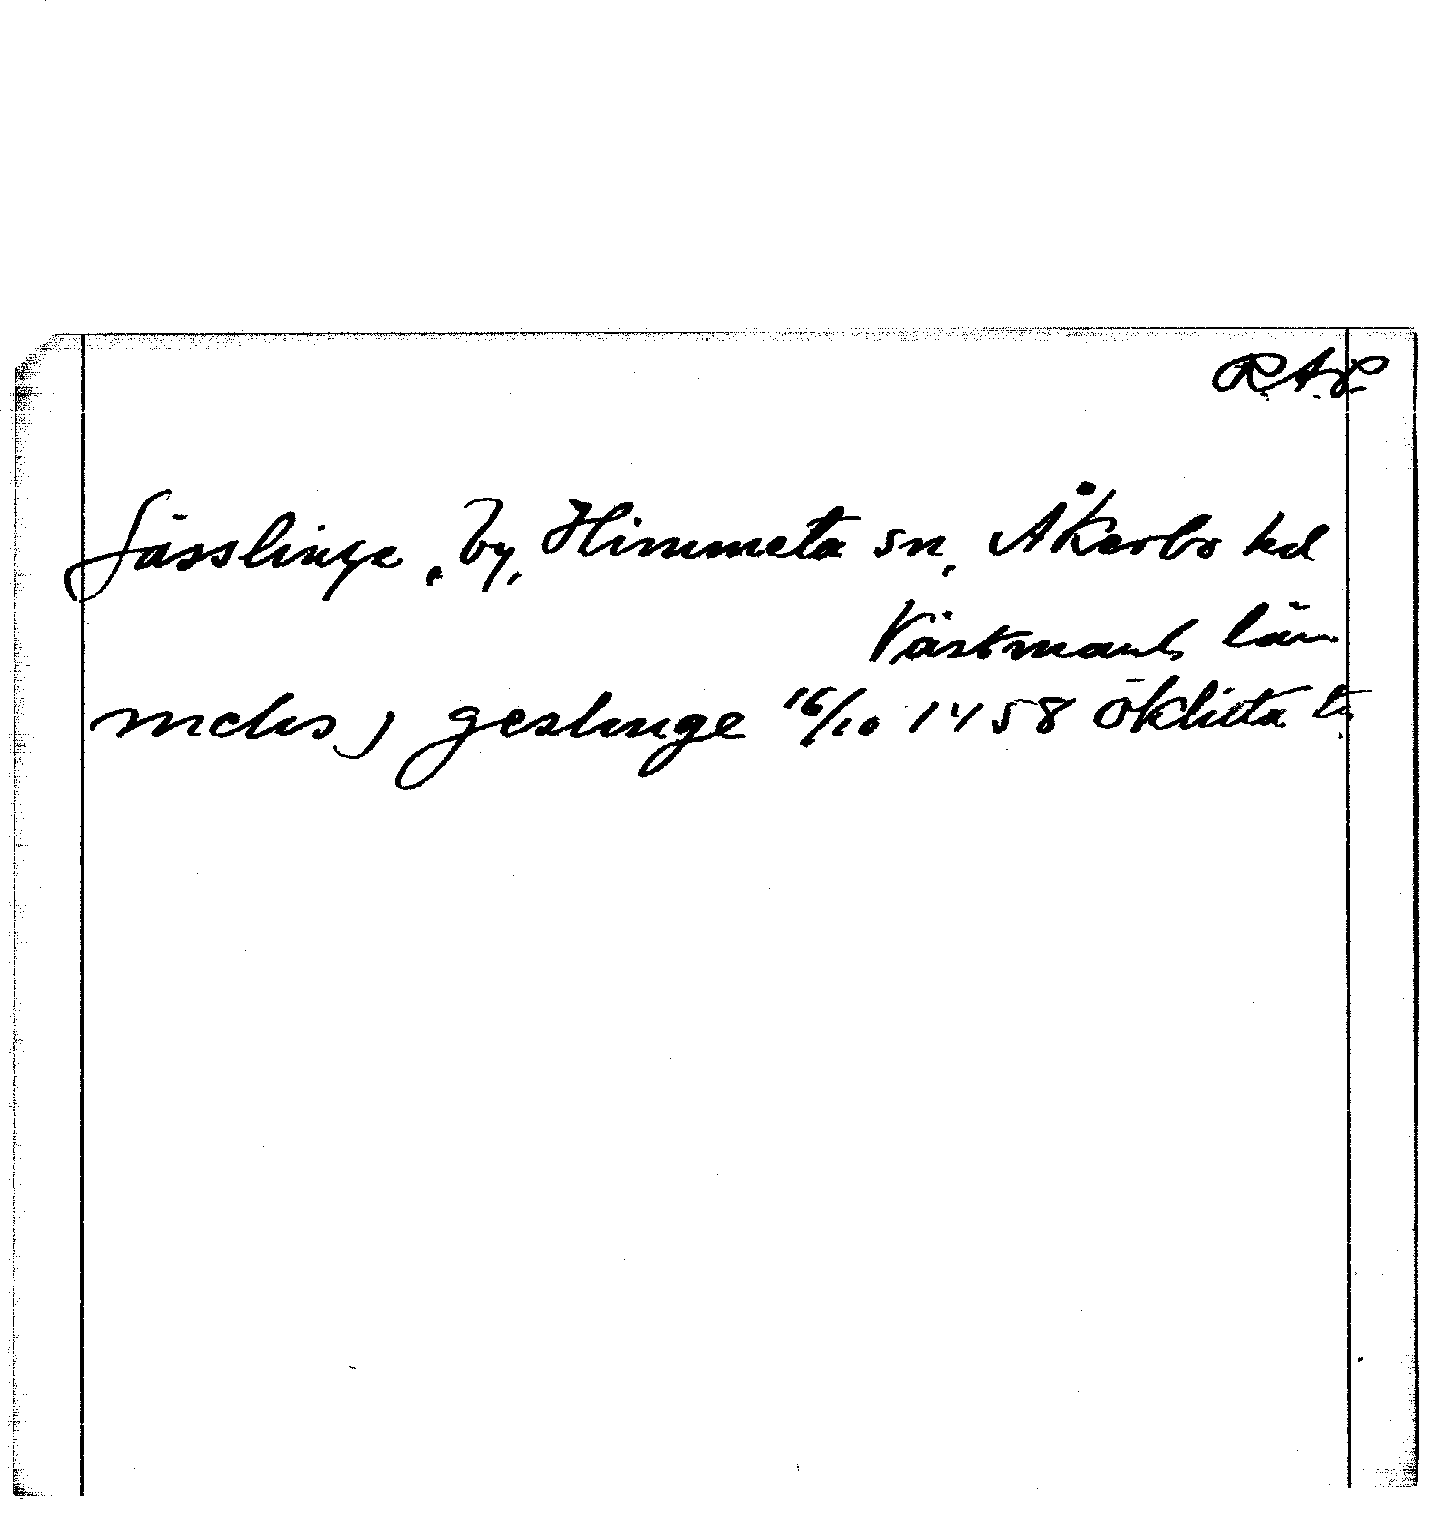 R.A.P.
Jässlinge, by, Himmeta sn, Åkerbo hd
Västmanl. län
nichis j geslinge 16/10 1458 Öklista